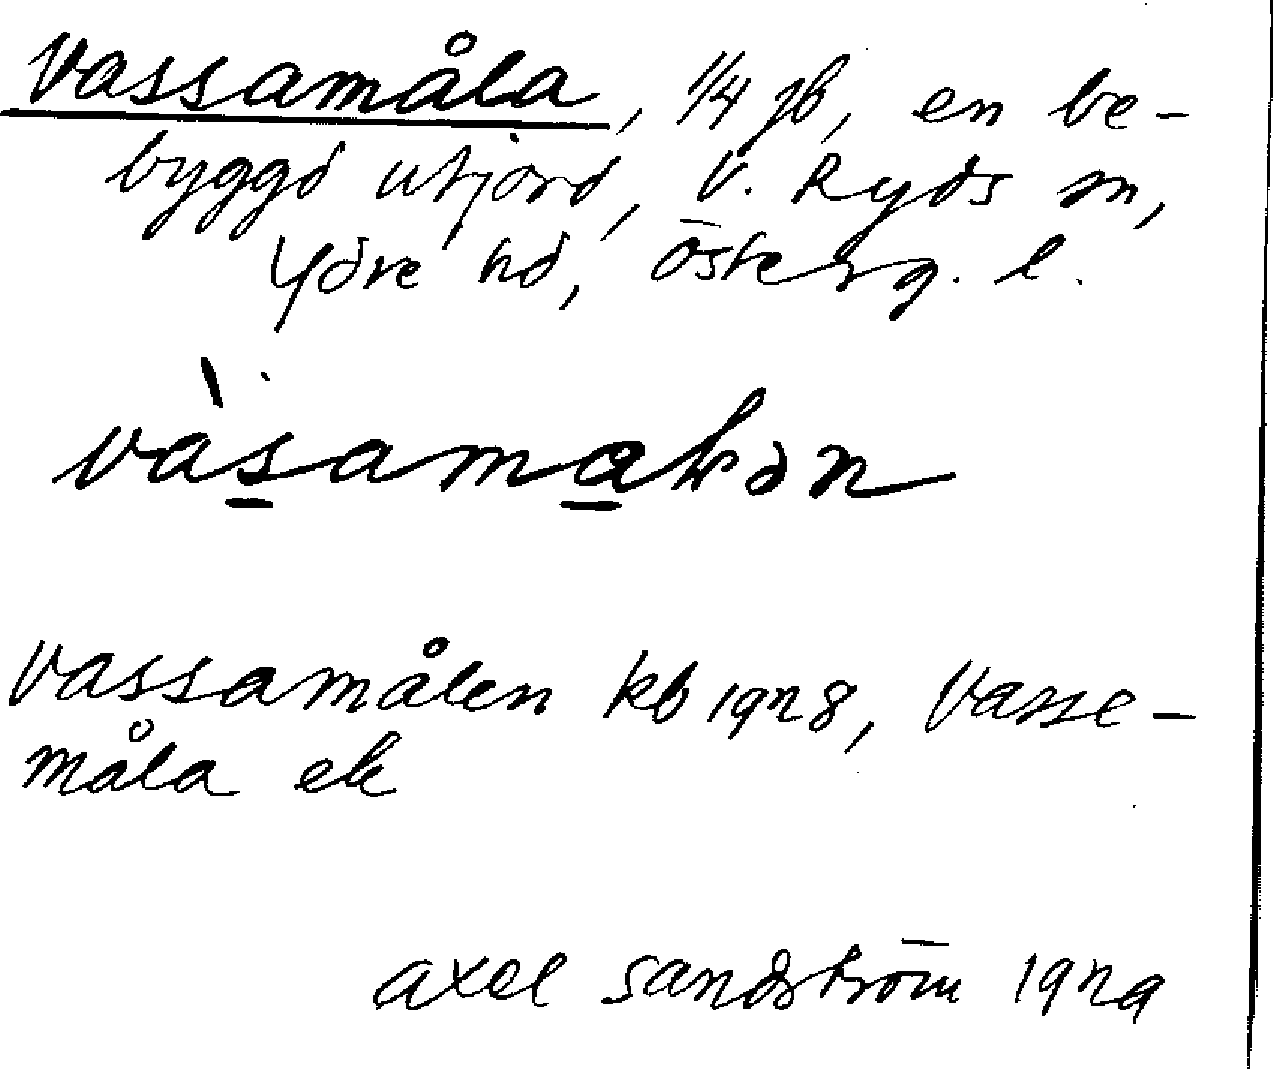 Vassamåla, 1/4 jb, en be-
byggd utjord, V. Ryds sn,
Ydre hd, Österg. l.
Vassamålen kb 1928, Vasse-
måla ek
Axel Sandström 1929